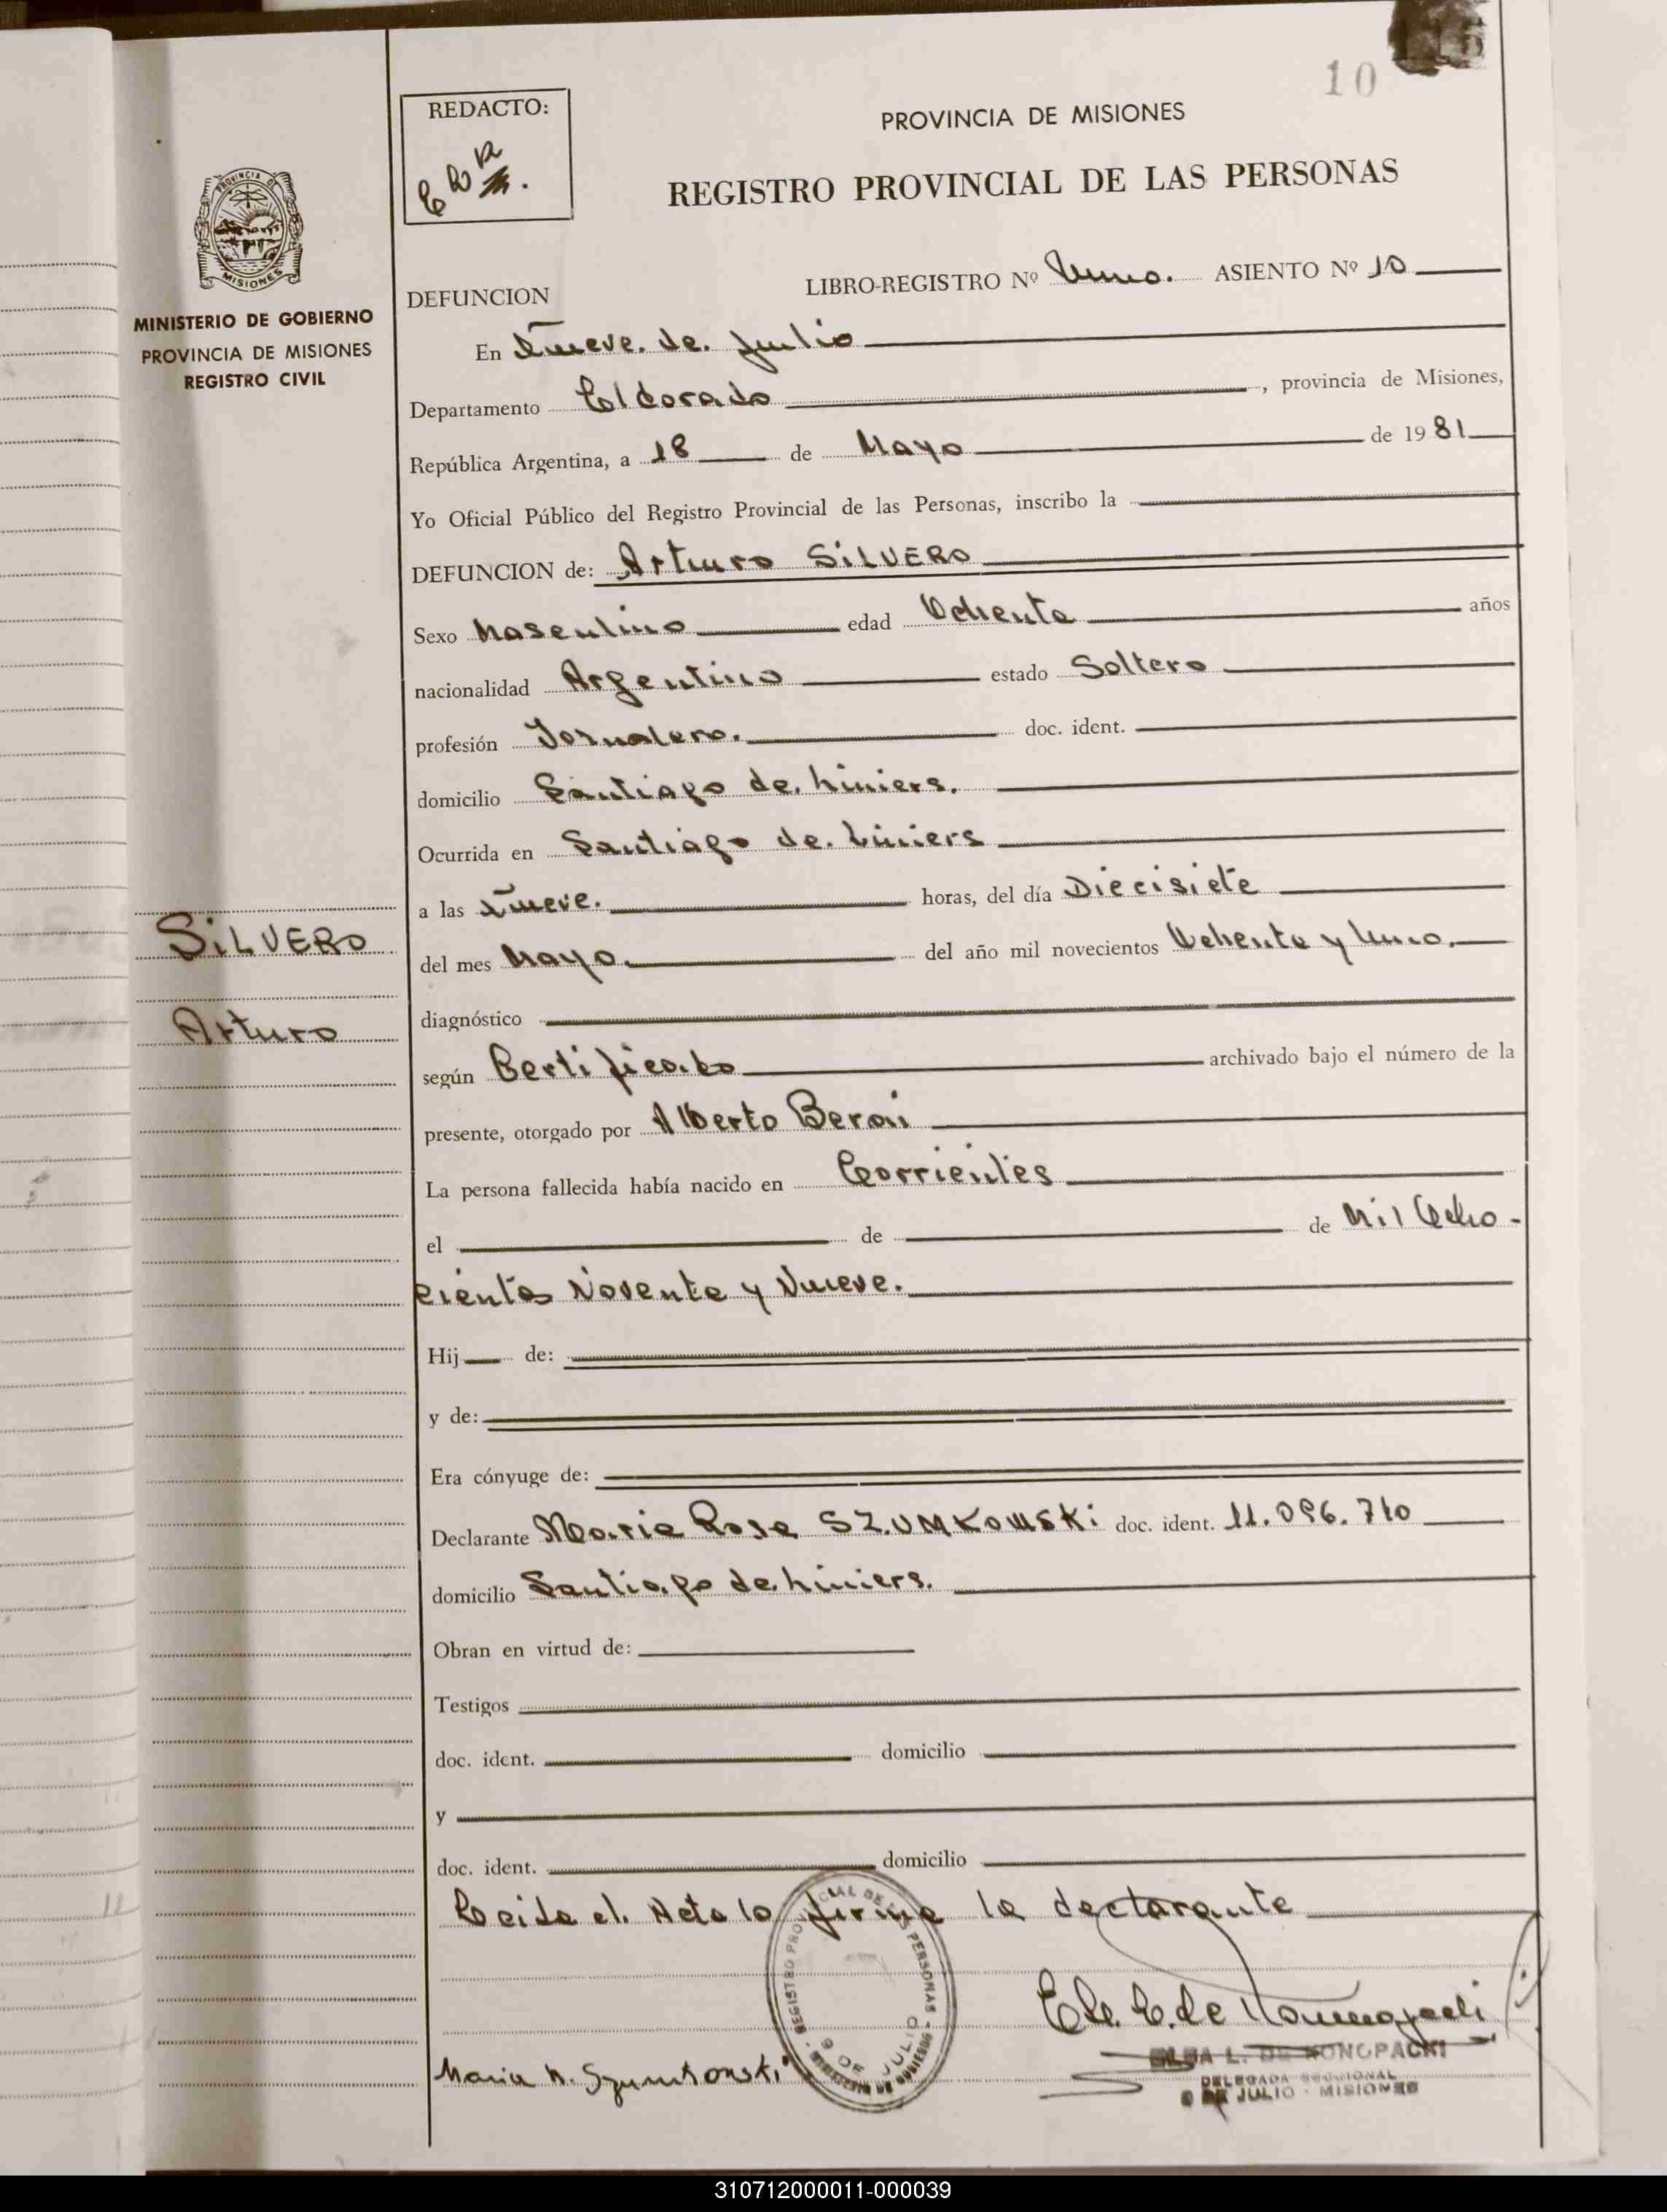 10
REDACTO:
PROVINCIA DE MISIONES
REGISTRO PROVINCIAL DE LAS PERSONAS
PROVINCIA DE
MISIONES
MINISTERIO DE GOBIERNO
PROVINCIA DE MISIONES
REGISTRO CIVIL
DEFUNCION
LIBRO-REGISTRO Nº Uno. ASIENTO Nº 10
En Nueve de Julio
Departamento Eldorado, provincia de Misiones,
República Argentina, a 18 de Mayo de 1981
Yo Oficial Público del Registro Provincial de las Personas, inscribo la
DEFUNCION de: Arturo SILVERO
Sexo Masculino edad Ochenta años
nacionalidad Argentino estado Soltero
profesión Jornalero. doc. ident.
domicilio Santiago de Liniers.
Ocurrida en Santiago de Liniers
a las Nueve. horas, del día Diecisiete
SILVERO
del mes Mayo. del año mil novecientos Ochenta y Uno.
Arturo
diagnóstico
según Certificado archivado bajo el número de la
presente, otorgado por Alberto
La persona fallecida había nacido en Corrientes
el de de Mil Ocho-
cientos Noventa y Nueve.
Hij de:
y de:
Era cónyuge de:
Declarante Maria Rosa SZUMKOWSKI doc. ident. 11.096.710
domicilio Santiago de Liniers.
Obran en virtud de:
Testigos
doc. ident. domicilio
y
doc. ident. domicilio
Leida el Acta la firma la declarante
REGISTRO PROVINCIAL DE LAS PERSONAS
9 DE JULIO
MINISTERIO DE GOBIERNO
L. DE KONOPACKI
DELEGADA SECCIONAL
9 DE JULIO - MISIONES
310712000011-000039